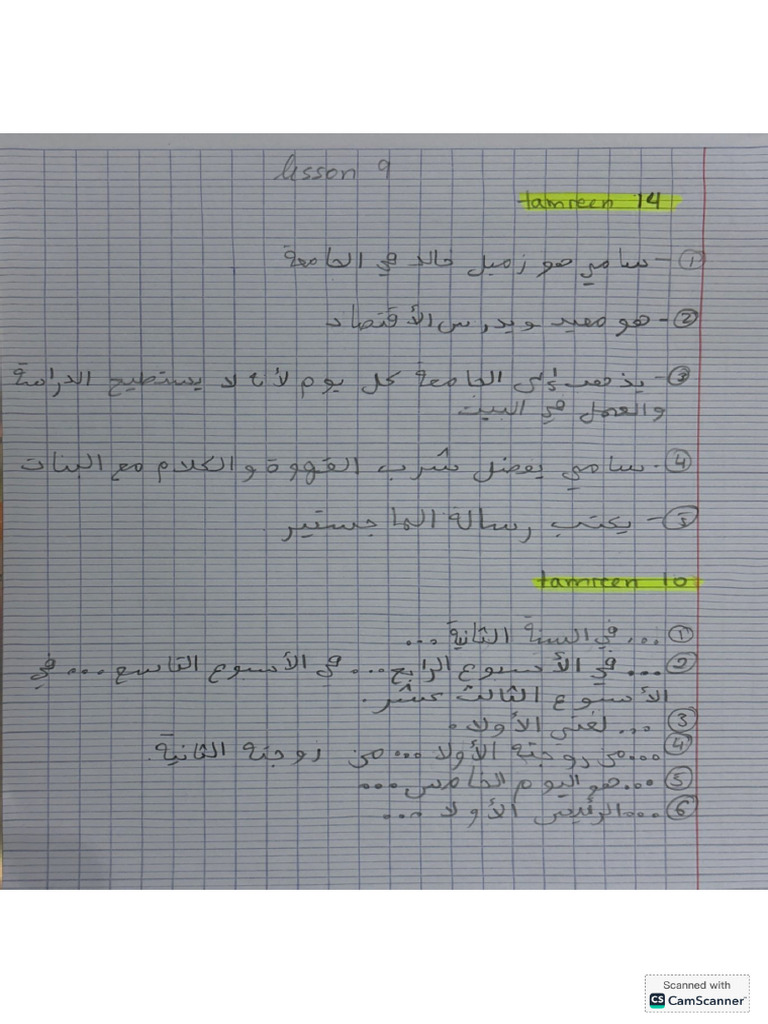 lesson 9
tamreen 14
① - سامي هو زميل خالد في الجامعة
② - هو معيد ويدرس الأقتصاد
③ - يذهب إلى الجامعة كل يوم لأنه لا يستطيع الدراسة
والعمل في البيت
④ - سامي يفضل شرب القهوة والكلام مع البنات
⑤ - يكتب رسالة الماجستير
tamreen 10
① ... في السنة الثانية ...
② ... في الأسبوع الرابع ... في الأسبوع التاسع ... في
الأسبوع الثالث عشر.
③ ... لغتي الأولا.
④ ... من زوجته الأولا ... من زوجته الثانية.
⑤ ... هو اليوم الخامس ...
⑥ ... الرئيس الأولا ...
Scanned with
CS CamScanner